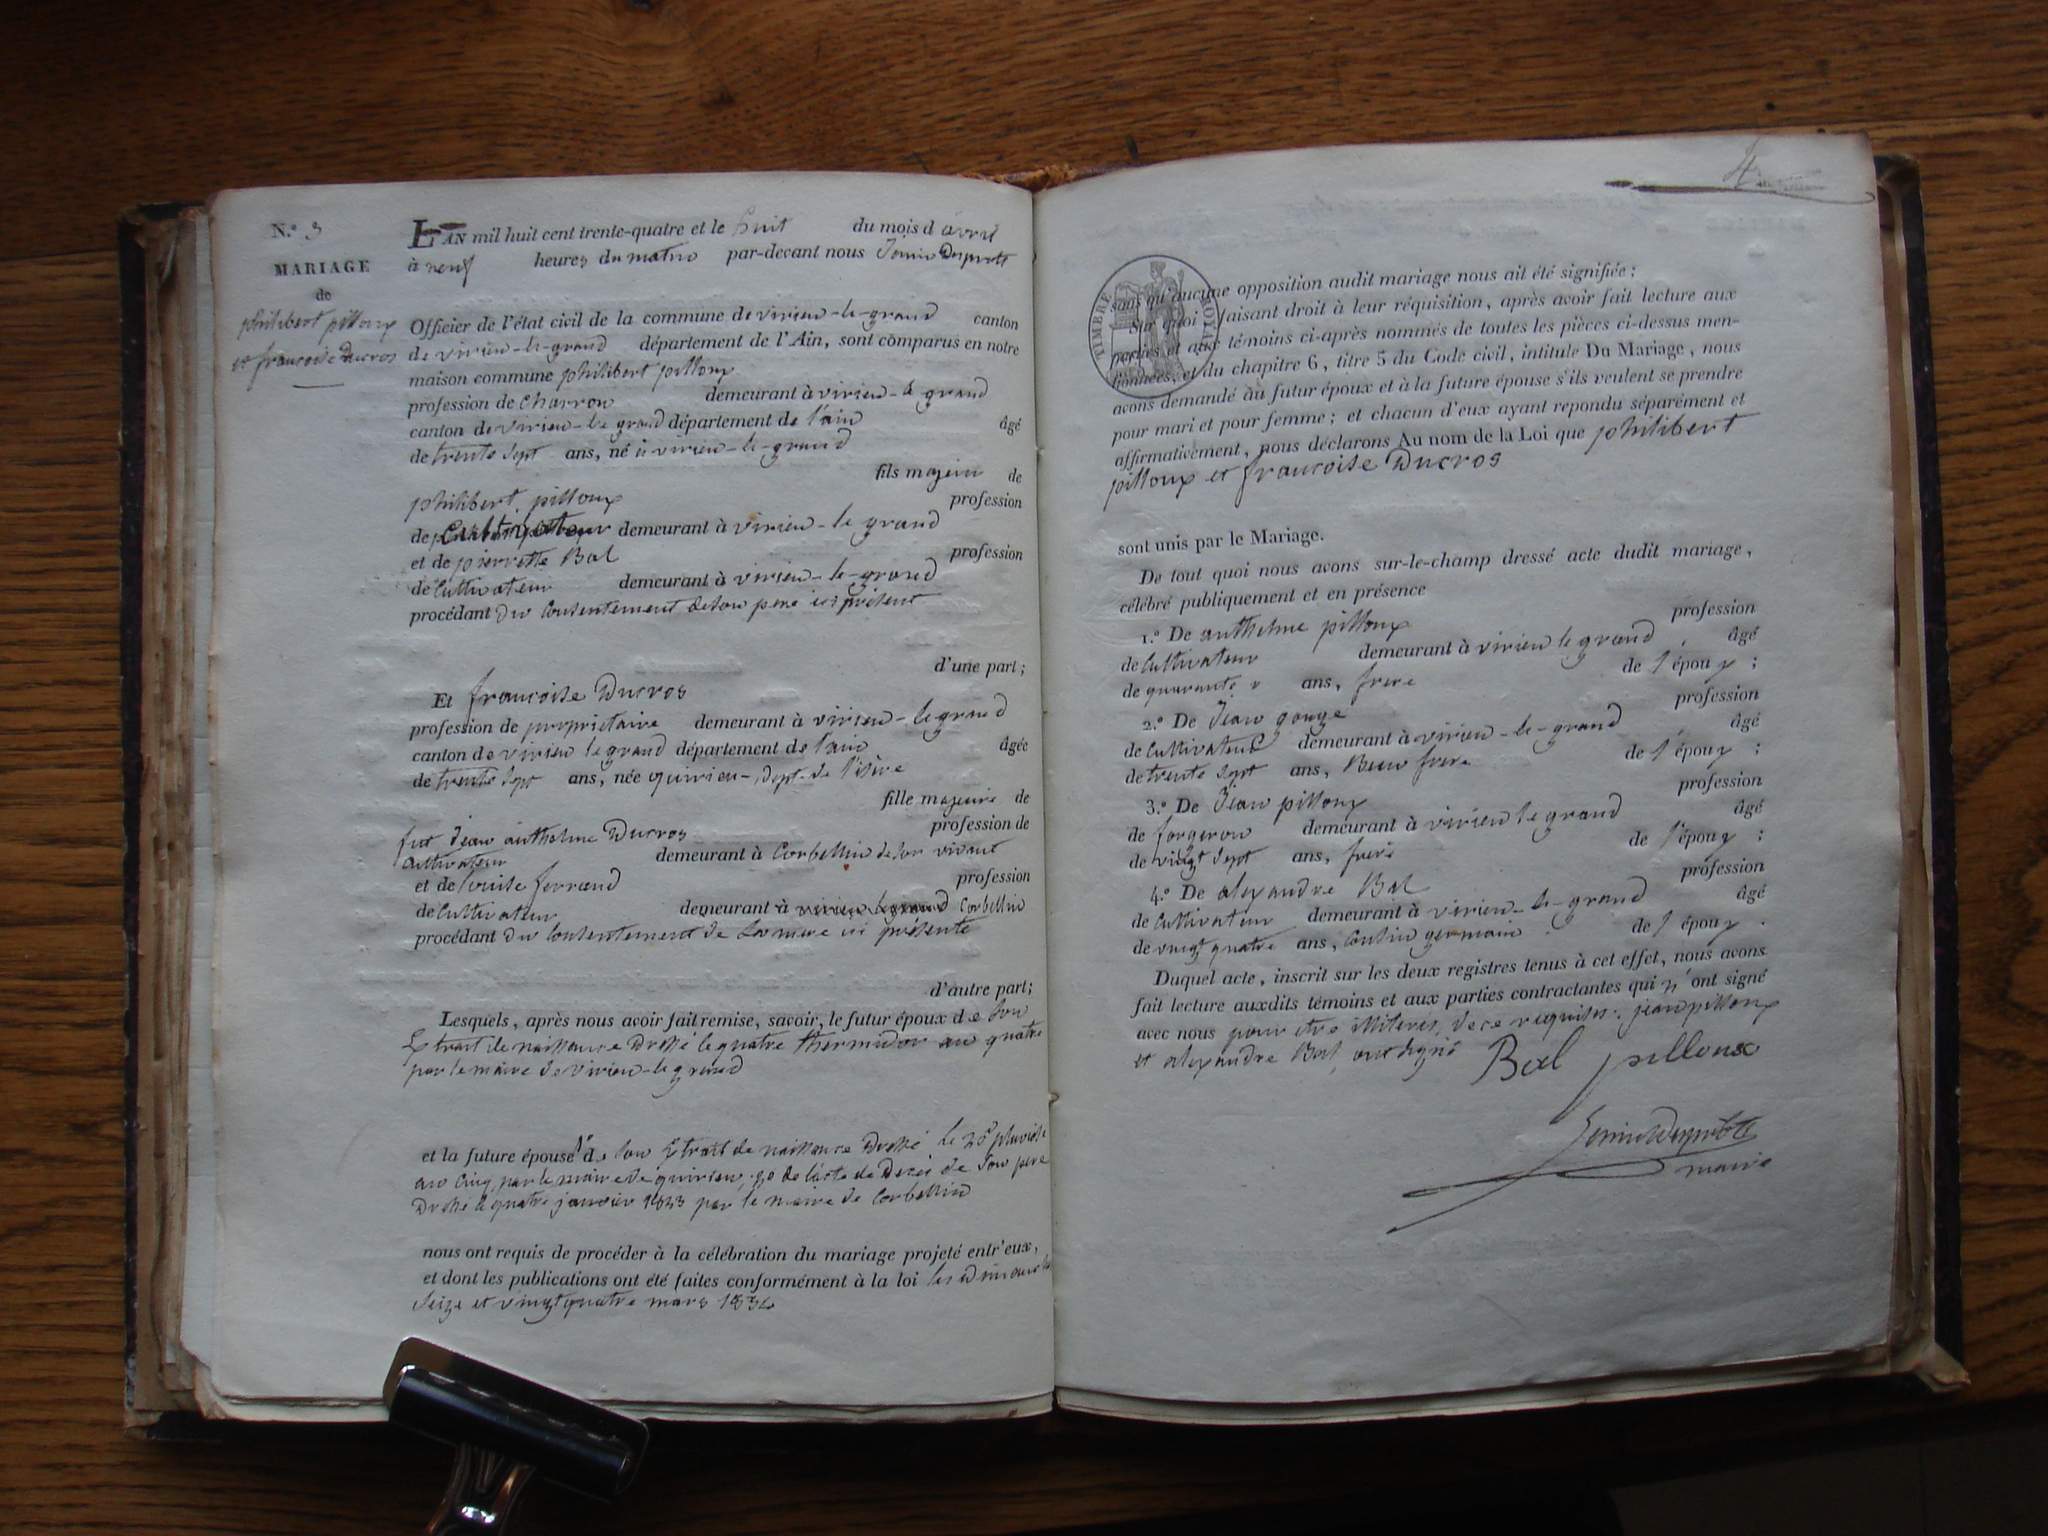 N.o 3
MARIAGE
de
philibert pilloux
et francoise Ducros
L'AN mil huit cent trente-quatre et le huit du mois d avril
à neuf heures du matin par-devant nous
Officier de l'état civil de la commune de virieu-le-grand canton
de virieu-le-grand département de l'Ain, sont comparus en notre
maison commune philibert pilloux
profession de charron demeurant à virieu-le grand
canton de virieu-le grand département de l'ain âgé
de trente sept ans, né à virieu-le-grand
fils majeur de
philibert pilloux profession
de Cultivateur demeurant à virieu-le grand
et de pierrette Bal profession
de Cultivateur demeurant à virieu-le-grand
procédant du Consentement de son pere ici présent
d'une part;
Et francoise Ducros
profession de propriétaire demeurant à virieu-le grand
canton de virieu le grand département de l'ain âgée
de trente sept ans, née quirieu-, dept. de l'isère
fille majeure de
fut jean anthelme Ducros profession de
Cultivateur demeurant à Corbellin de son vivant
et de louise ferrand profession
de Cultivateur demeurant à virieu le grand Corbellin
procédant du Consentement de sa mere ici présente
d'autre part;
Lesquels, après nous avoir fait remise, savoir, le futur époux de son
Extrait de naissance Dressé le quatre thermidor an quatre
par le maire de virieu-le grand
et la future épouse 1o de son Extrait de naissance Dressé le pluviose
an cinq par le maire de quirieu, 2o de l'acte de Decès de son pere
Dressé le quatre janvier 1823 par le maire de Corbellin
nous ont requis de procéder à la célébration du mariage projeté entr'eux,
et dont les publications ont été faites conformément à la loi les Dimanches
seize et vingt quatre mars 1834
4
TIMBRE ROYAL
sans qu'aucune opposition audit mariage nous ait été signifiée;
Sur quoi, faisant droit à leur réquisition, après avoir fait lecture aux
parties et aux témoins ci-après nommés de toutes les pièces ci-dessus men-
tionnées, et du chapitre 6, titre 5 du Code civil, intitulé Du Mariage, nous
avons demandé au futur époux et à la future épouse s'ils veulent se prendre
pour mari et pour femme; et chacun d'eux ayant répondu séparément et
affirmativement, nous déclarons Au nom de la Loi que philibert
pilloux et francoise Ducros
sont unis par le Mariage.
De tout quoi nous avons sur-le-champ dressé acte dudit mariage,
célébré publiquement et en présence
1.o De anthelme pilloux profession
de Cultivateur demeurant à virieu le grand âgé
de quarante ans, frere de l'époux;
2.o De Jean gouge profession
de Cultivateur demeurant à virieu-le-grand âgé
de trente sept ans, Beau frere de l'époux;
3.o De Jean pilloux profession
de forgeron demeurant à virieu le grand âgé
de vingt sept ans, frere de l'époux;
4.o De alexandre Bal profession
de Cultivateur demeurant à virieu-le-grand âgé
de vingt quatre ans, Cousin germain de l'époux.
Duquel acte, inscrit sur les deux registres tenus à cet effet, nous avons
fait lecture auxdits témoins et aux parties contractantes qui n'ont signé
avec nous pour etre illiterés, de ce requises. jean pilloux
et alexandre Bal ont signé Bal pilloux
maire